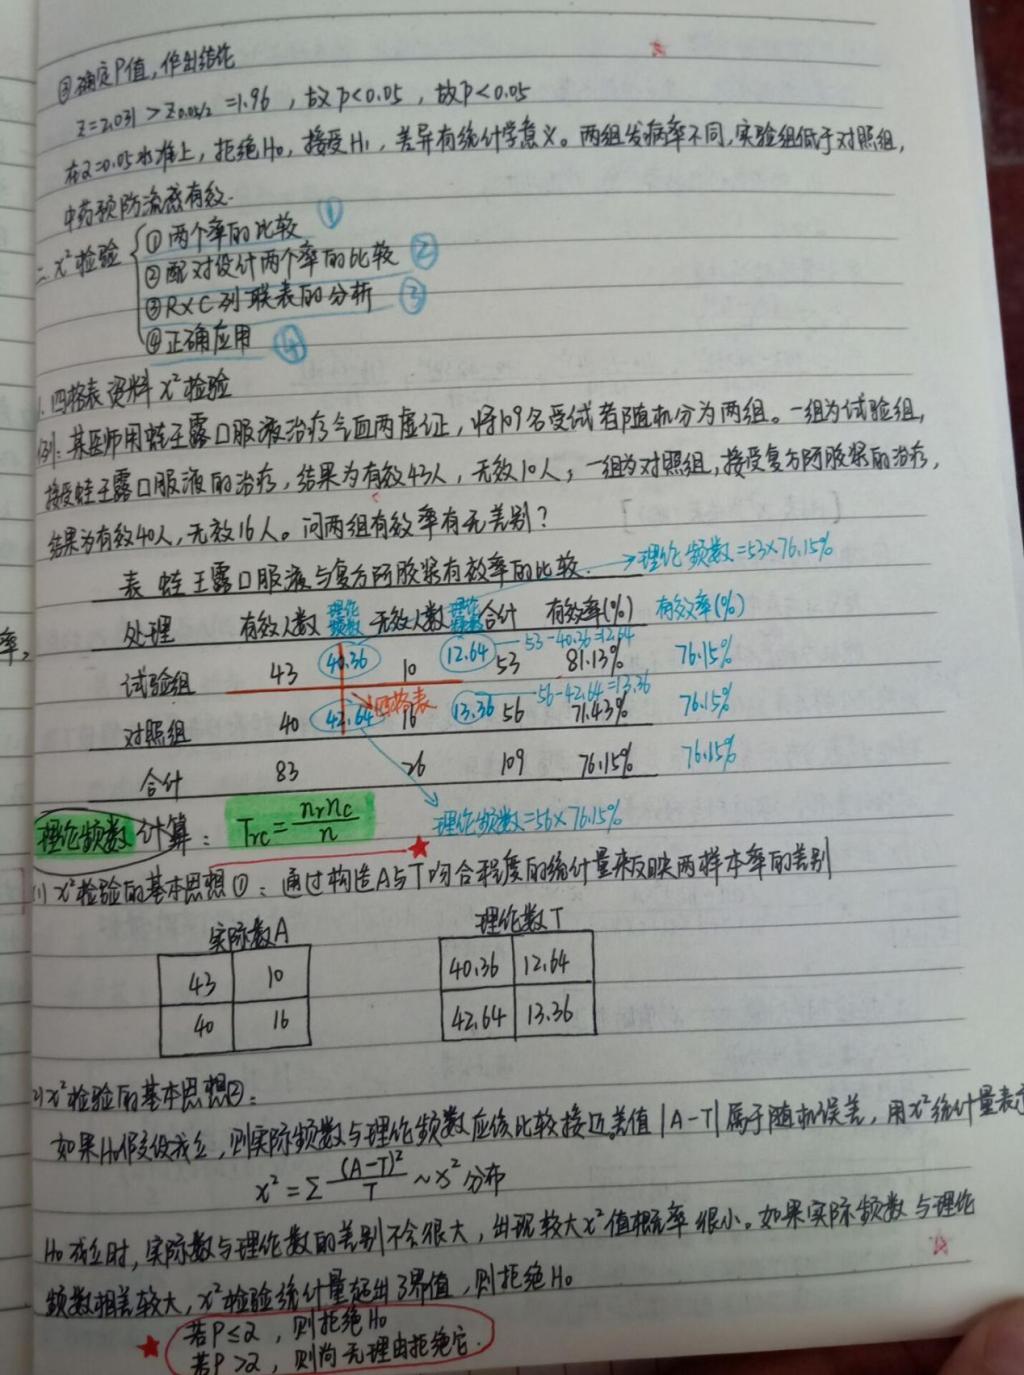 ③确定P值,作出结论
Z=2.031>Z0.05/2=1.96,故P<0.05,故P<0.05
在α=0.05水准上,拒绝H₀,接受H₁,差异有统计学意义。两组发病率不同,实验组低于对照组,
中药预防流感有效.
二、x²检验 ①两个率的比较 ①
②配对设计两个率的比较 ②
③R×C列联表的分析 ③
④正确应用 ④
1.四格表资料x²检验
例:某医师用蜂王露口服液治疗气血两虚证,将109名受试者随机分为两组。一组为试验组,
接受蜂王露口服液的治疗,结果为有效43人,无效10人;一组为对照组,接受复方阿胶浆的治疗,
结果为有效40人,无效16人。问两组有效率有无差别?
表 蜂王露口服液与复方阿胶浆有效率的比较. →理论频数=53×76.15%
处理 有效人数 理论频数 无效人数 理论频数 合计 有效率(%) 有效率(%)
53-40.36=12.64
试验组 43 40.36 10 12.64 53 81.13% 76.15%
四格表 56-42.64=13.36
对照组 40 42.64 16 13.36 56 71.43% 76.15%
合计 83 26 109 76.15% 76.15%
理论频数计算: Trc=nrnc/n 理论频数=56×76.15%
(1) x²检验的基本思想①:通过构造A与T吻合程度的统计量来反映两样本率的差别
实际数A 理论数T
43 10 40.36 12.64
40 16 42.64 13.36
(2) x²检验的基本思想②:
如果H₀假设成立,则实际频数与理论频数应该比较接近.差值|A-T|属于随机误差,用x²统计量表示
x²=Σ(A-T)²/T ~x²分布
H₀成立时,实际数与理论数的差别不会很大,出现较大x²值概率很小。如果实际频数与理论
频数相差较大,x²检验统计量超出了界值,则拒绝H₀
若P≤α,则拒绝H₀
若P>α,则尚无理由拒绝它.
率,